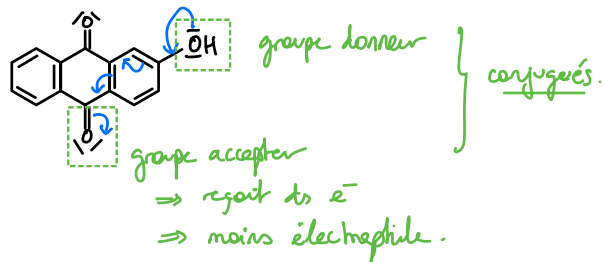 O
OH
groupe donneur
conjugués.
O
groupe accepter
⇒ reçoit ds e⁻
⇒ moins électrophile.